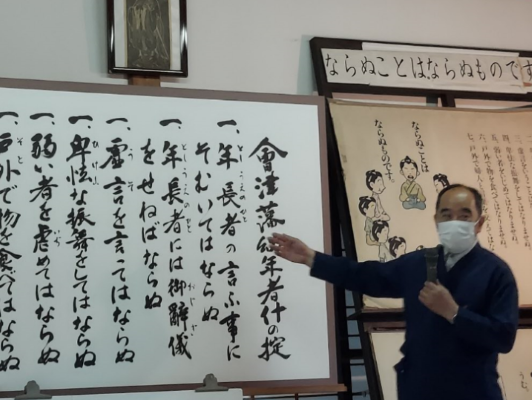 ならぬことはならぬものです
會津藩幼年者什の掟
一、年長者の言ふ事に
そむいてはならぬ
一、年長者には御辭儀
をせねばならぬ
一、虚言を言ってはならぬ
一、卑怯な振舞をしてはならぬ
一、弱い者を虐めてはならぬ
一、戸外で物を食べてはならぬ
ならぬことは
ならぬものです。